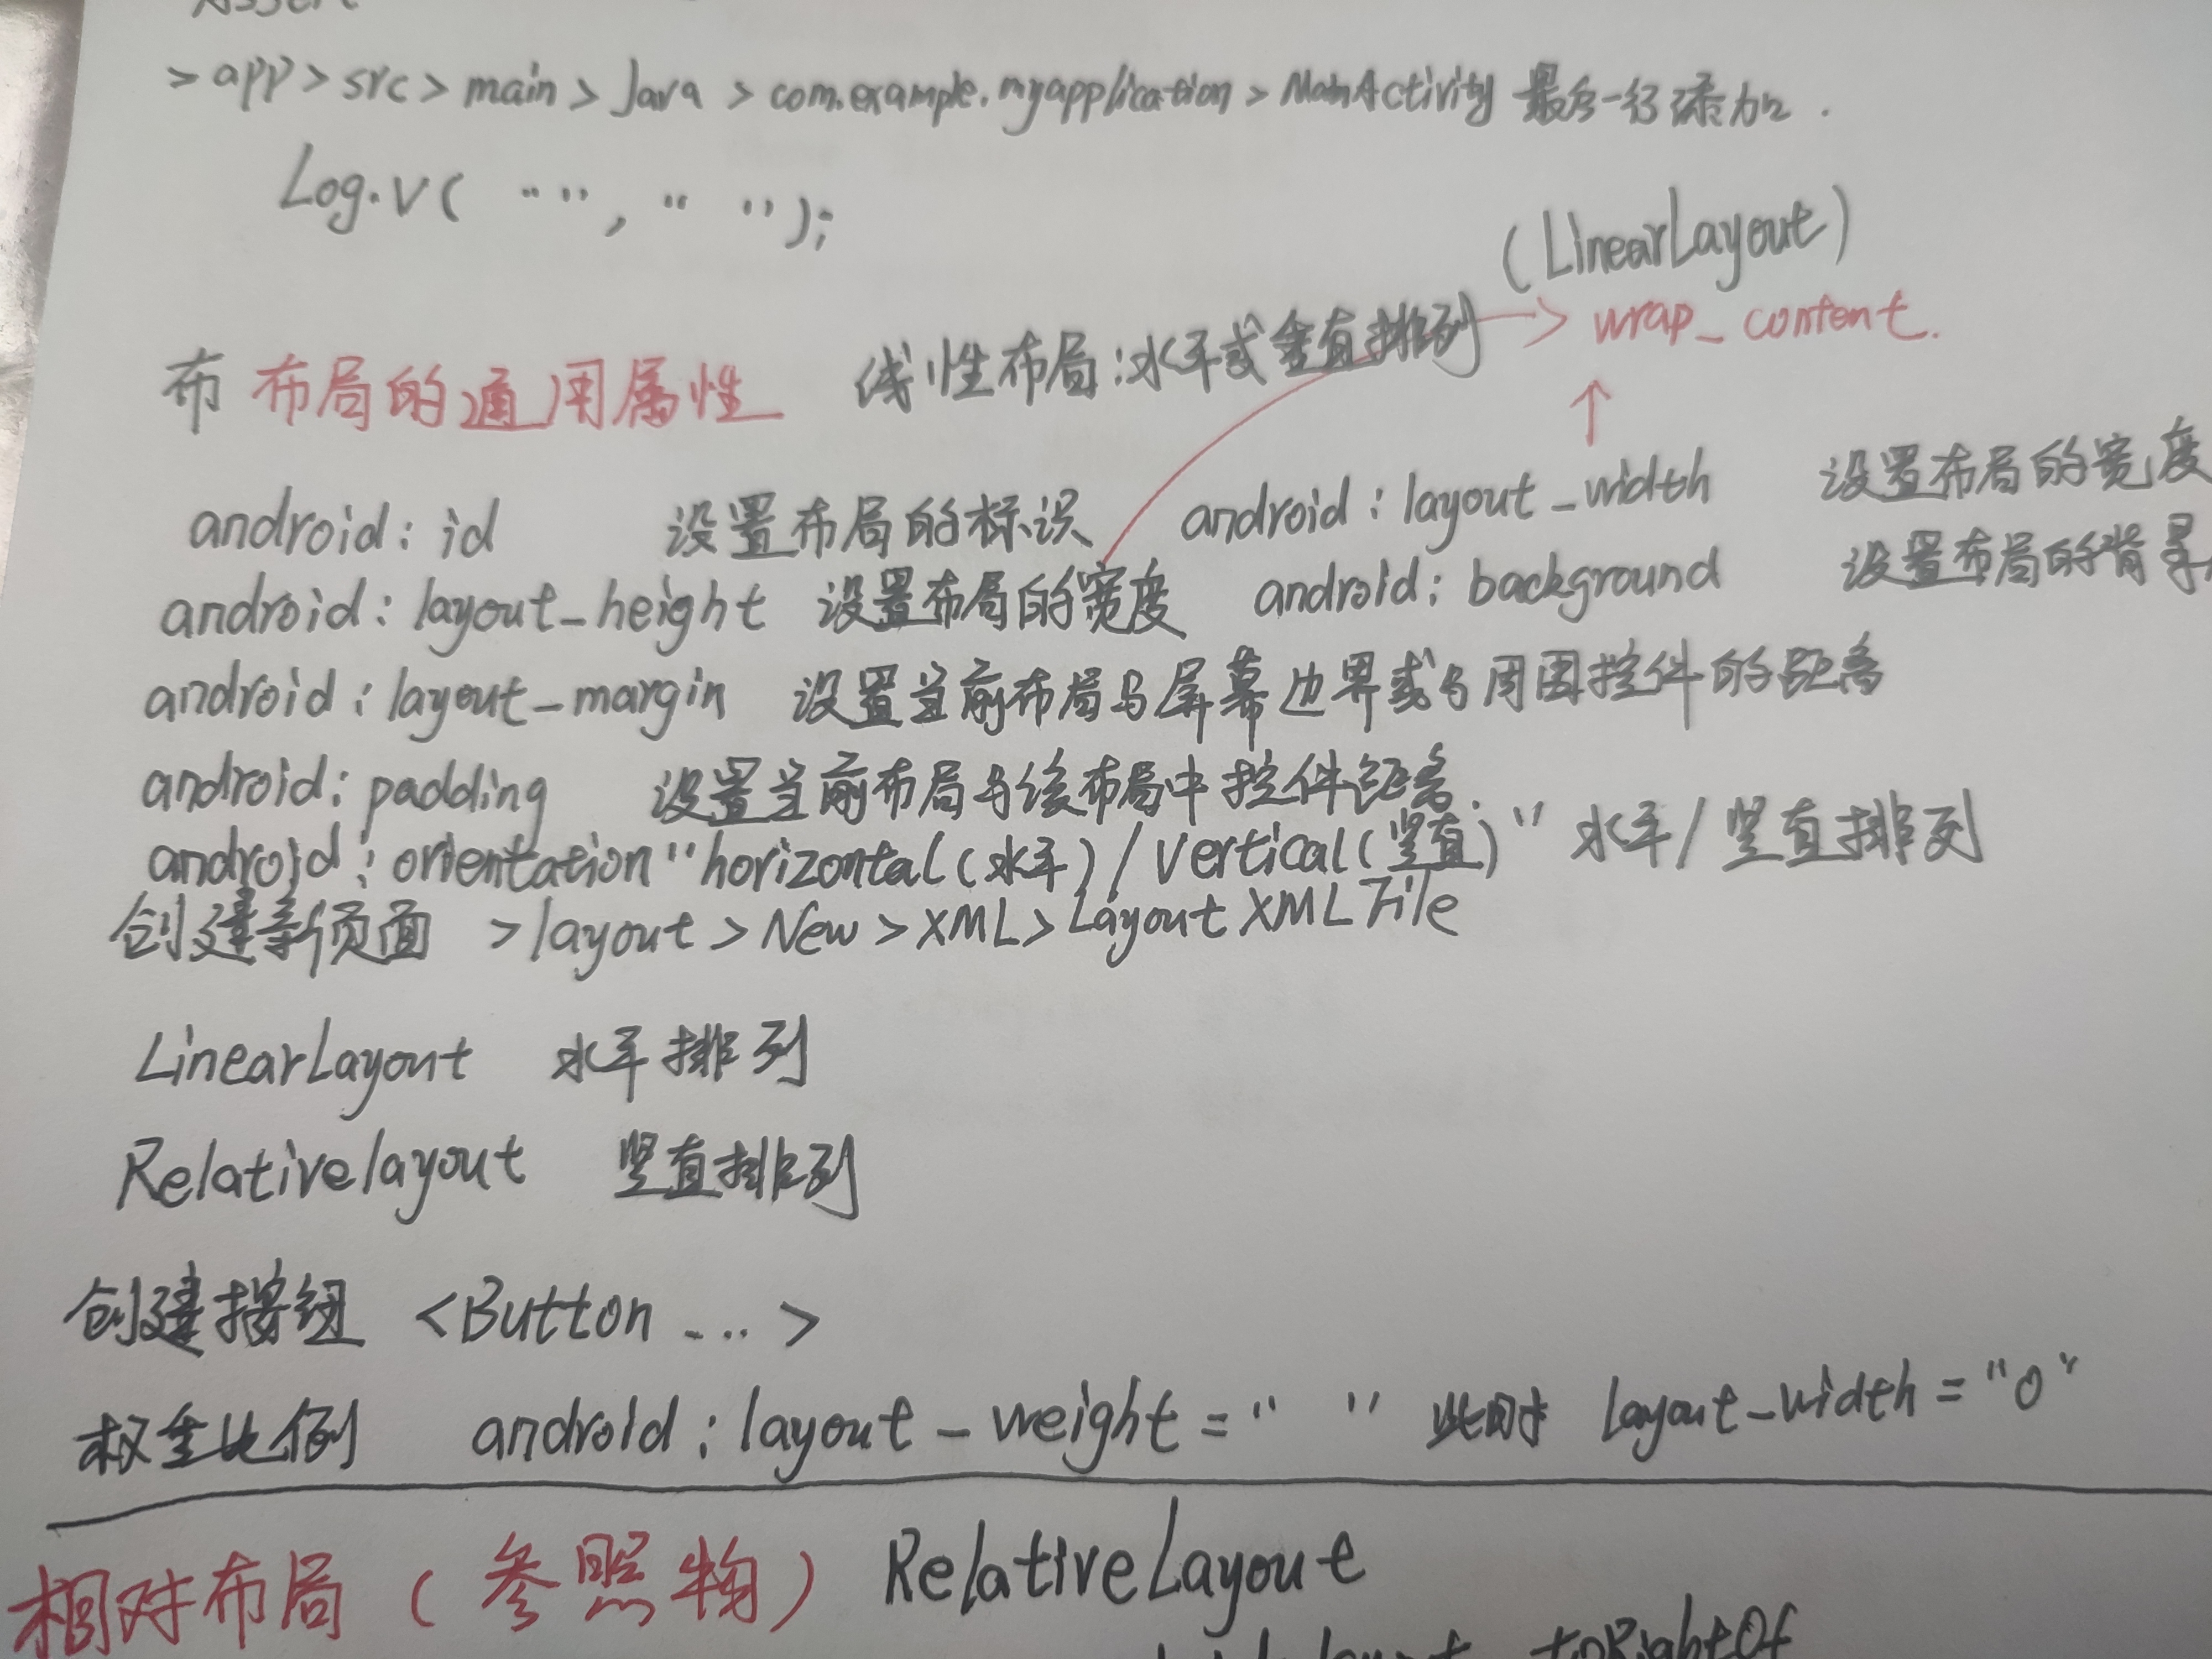 Assert
>app>src>main>Java>com.example.myapplication>MainActivity 最后一行添加.
Log.v( " " , " " );
(LinearLayout)
布 布局的通用属性 线性布局:水平或垂直排列 → wrap_content.
↑
android:id 设置布局的标识 android:layout_width 设置布局的宽度
android:layout_height 设置布局的宽度 android:background 设置布局的背景
android:layout_margin 设置当前布局与屏幕边界或与周围控件的距离
android:padding 设置当前布局与该布局中控件距离.
android:orientation "horizontal(水平)/vertical(竖直)" 水平/竖直排列
创建新页面 >layout>New>XML>Layout XML File
LinearLayout 水平排列
Relativelayout 竖直排列
创建按钮 <Button ... >
权重比例 android:layout_weight=" " 此时 layout_width="0"
相对布局(参照物) RelativeLayout
layout_toRightOf